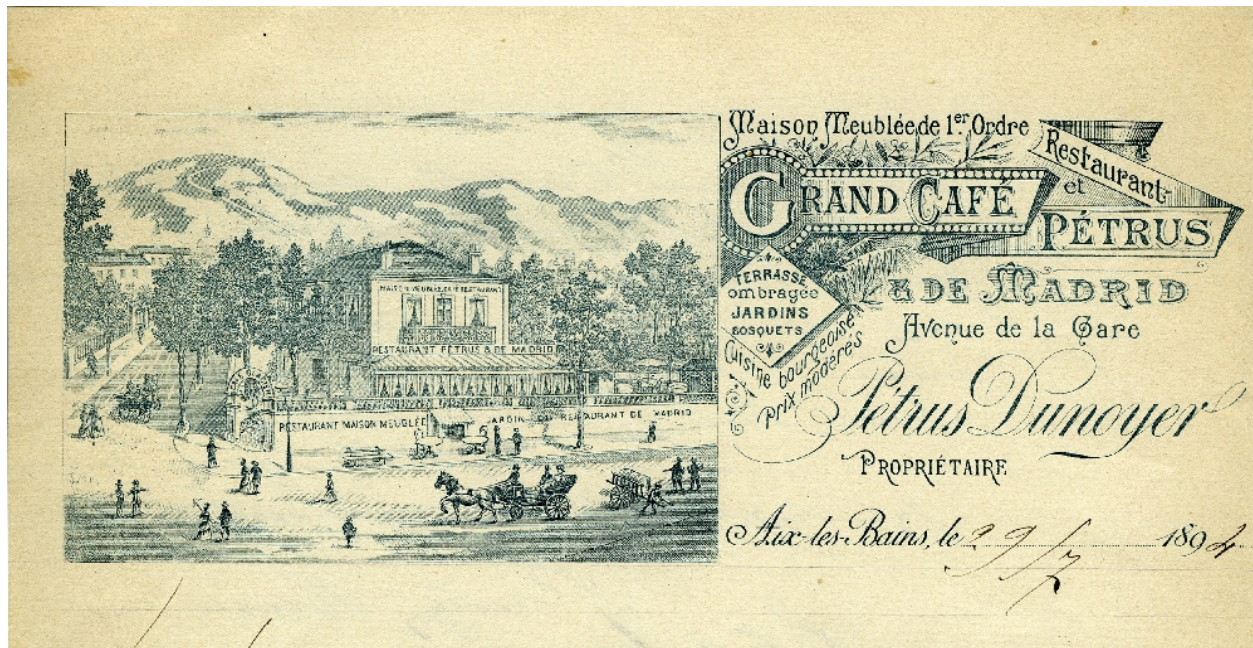 MAISON MEUBLÉE CAFÉ RESTAURANT
RESTAURANT PÉTRUS & DE MADRID
RESTAURANT MAISON MEUBLÉE
JARDIN DU RESTAURANT DE MADRID
Maison Meublée de 1er Ordre
GRAND CAFÉ
et
Restaurant-
PÉTRUS
& DE MADRID
TERRASSE
ombragée
JARDINS
BOSQUETS
Cuisine bourgeoise
Prix modérés
Avenue de la Gare
Pétrus Dunoyer
PROPRIÉTAIRE
Aix-les-Bains, le 29/7 1894